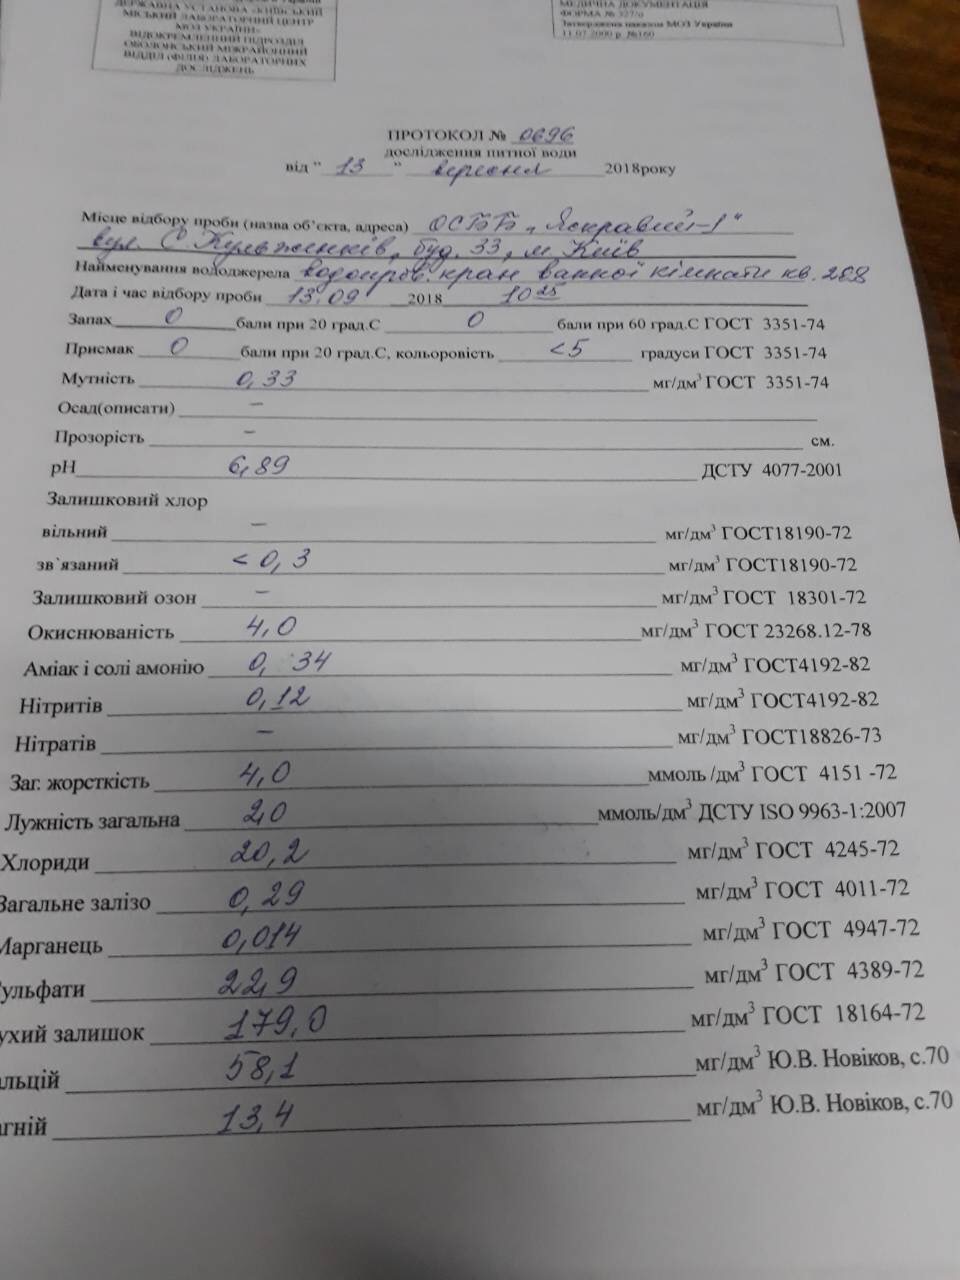 ДЕРЖАВНА УСТАНОВА «КИЇВСЬКИЙ
МІСЬКИЙ ЛАБОРАТОРНИЙ ЦЕНТР
МОЗ УКРАЇНИ»
ВІДОКРЕМЛЕНИЙ ПІДРОЗДІЛ
ОБОЛОНСЬКИЙ МІЖРАЙОННИЙ
ВІДДІЛ (ФІЛІЯ) ЛАБОРАТОРНИХ
ДОСЛІДЖЕНЬ
МЕДИЧНА ДОКУМЕНТАЦІЯ
ФОРМА № 327/о
Затверджена наказом МОЗ України
11.07.2000 р. №160
ПРОТОКОЛ № 0696
дослідження питної води
від " 13 " вересня 2018року
Місце відбору проби (назва об'єкта, адреса) ОСББ „Яскравий-1"
вул. С. Кульженків, буд. 33, м. Київ
Найменування вододжерела водопров. кран ванної кімнати кв. 268
Дата і час відбору проби 13.09 2018 10 25
Запах 0 бали при 20 град.С 0 бали при 60 град.С ГОСТ 3351-74
Присмак 0 бали при 20 град.С, кольоровість <5 градуси ГОСТ 3351-74
Мутність 0,33 мг/дм3 ГОСТ 3351-74
Осад(описати) –
Прозорість – см.
pH 6,89 ДСТУ 4077-2001
Залишковий хлор
вільний – мг/дм3 ГОСТ18190-72
зв`язаний < 0,3 мг/дм3 ГОСТ18190-72
Залишковий озон – мг/дм3 ГОСТ 18301-72
Окиснюваність 4,0 мг/дм3 ГОСТ 23268.12-78
Аміак і солі амонію 0,34 мг/дм3 ГОСТ4192-82
Нітритів 0,12 мг/дм3 ГОСТ4192-82
Нітратів – мг/дм3 ГОСТ18826-73
Заг. жорсткість 4,0 ммоль /дм3 ГОСТ 4151 -72
Лужність загальна 2,0 ммоль/дм3 ДСТУ ISO 9963-1:2007
Хлориди 20,2 мг/дм3 ГОСТ 4245-72
Загальне залізо 0,29 мг/дм3 ГОСТ 4011-72
Марганець 0,014 мг/дм3 ГОСТ 4947-72
ульфати 22,9 мг/дм3 ГОСТ 4389-72
ухий залишок 179,0 мг/дм3 ГОСТ 18164-72
альцій 58,1 мг/дм3 Ю.В. Новіков, с.70
агній 13,4 мг/дм3 Ю.В. Новіков, с.70